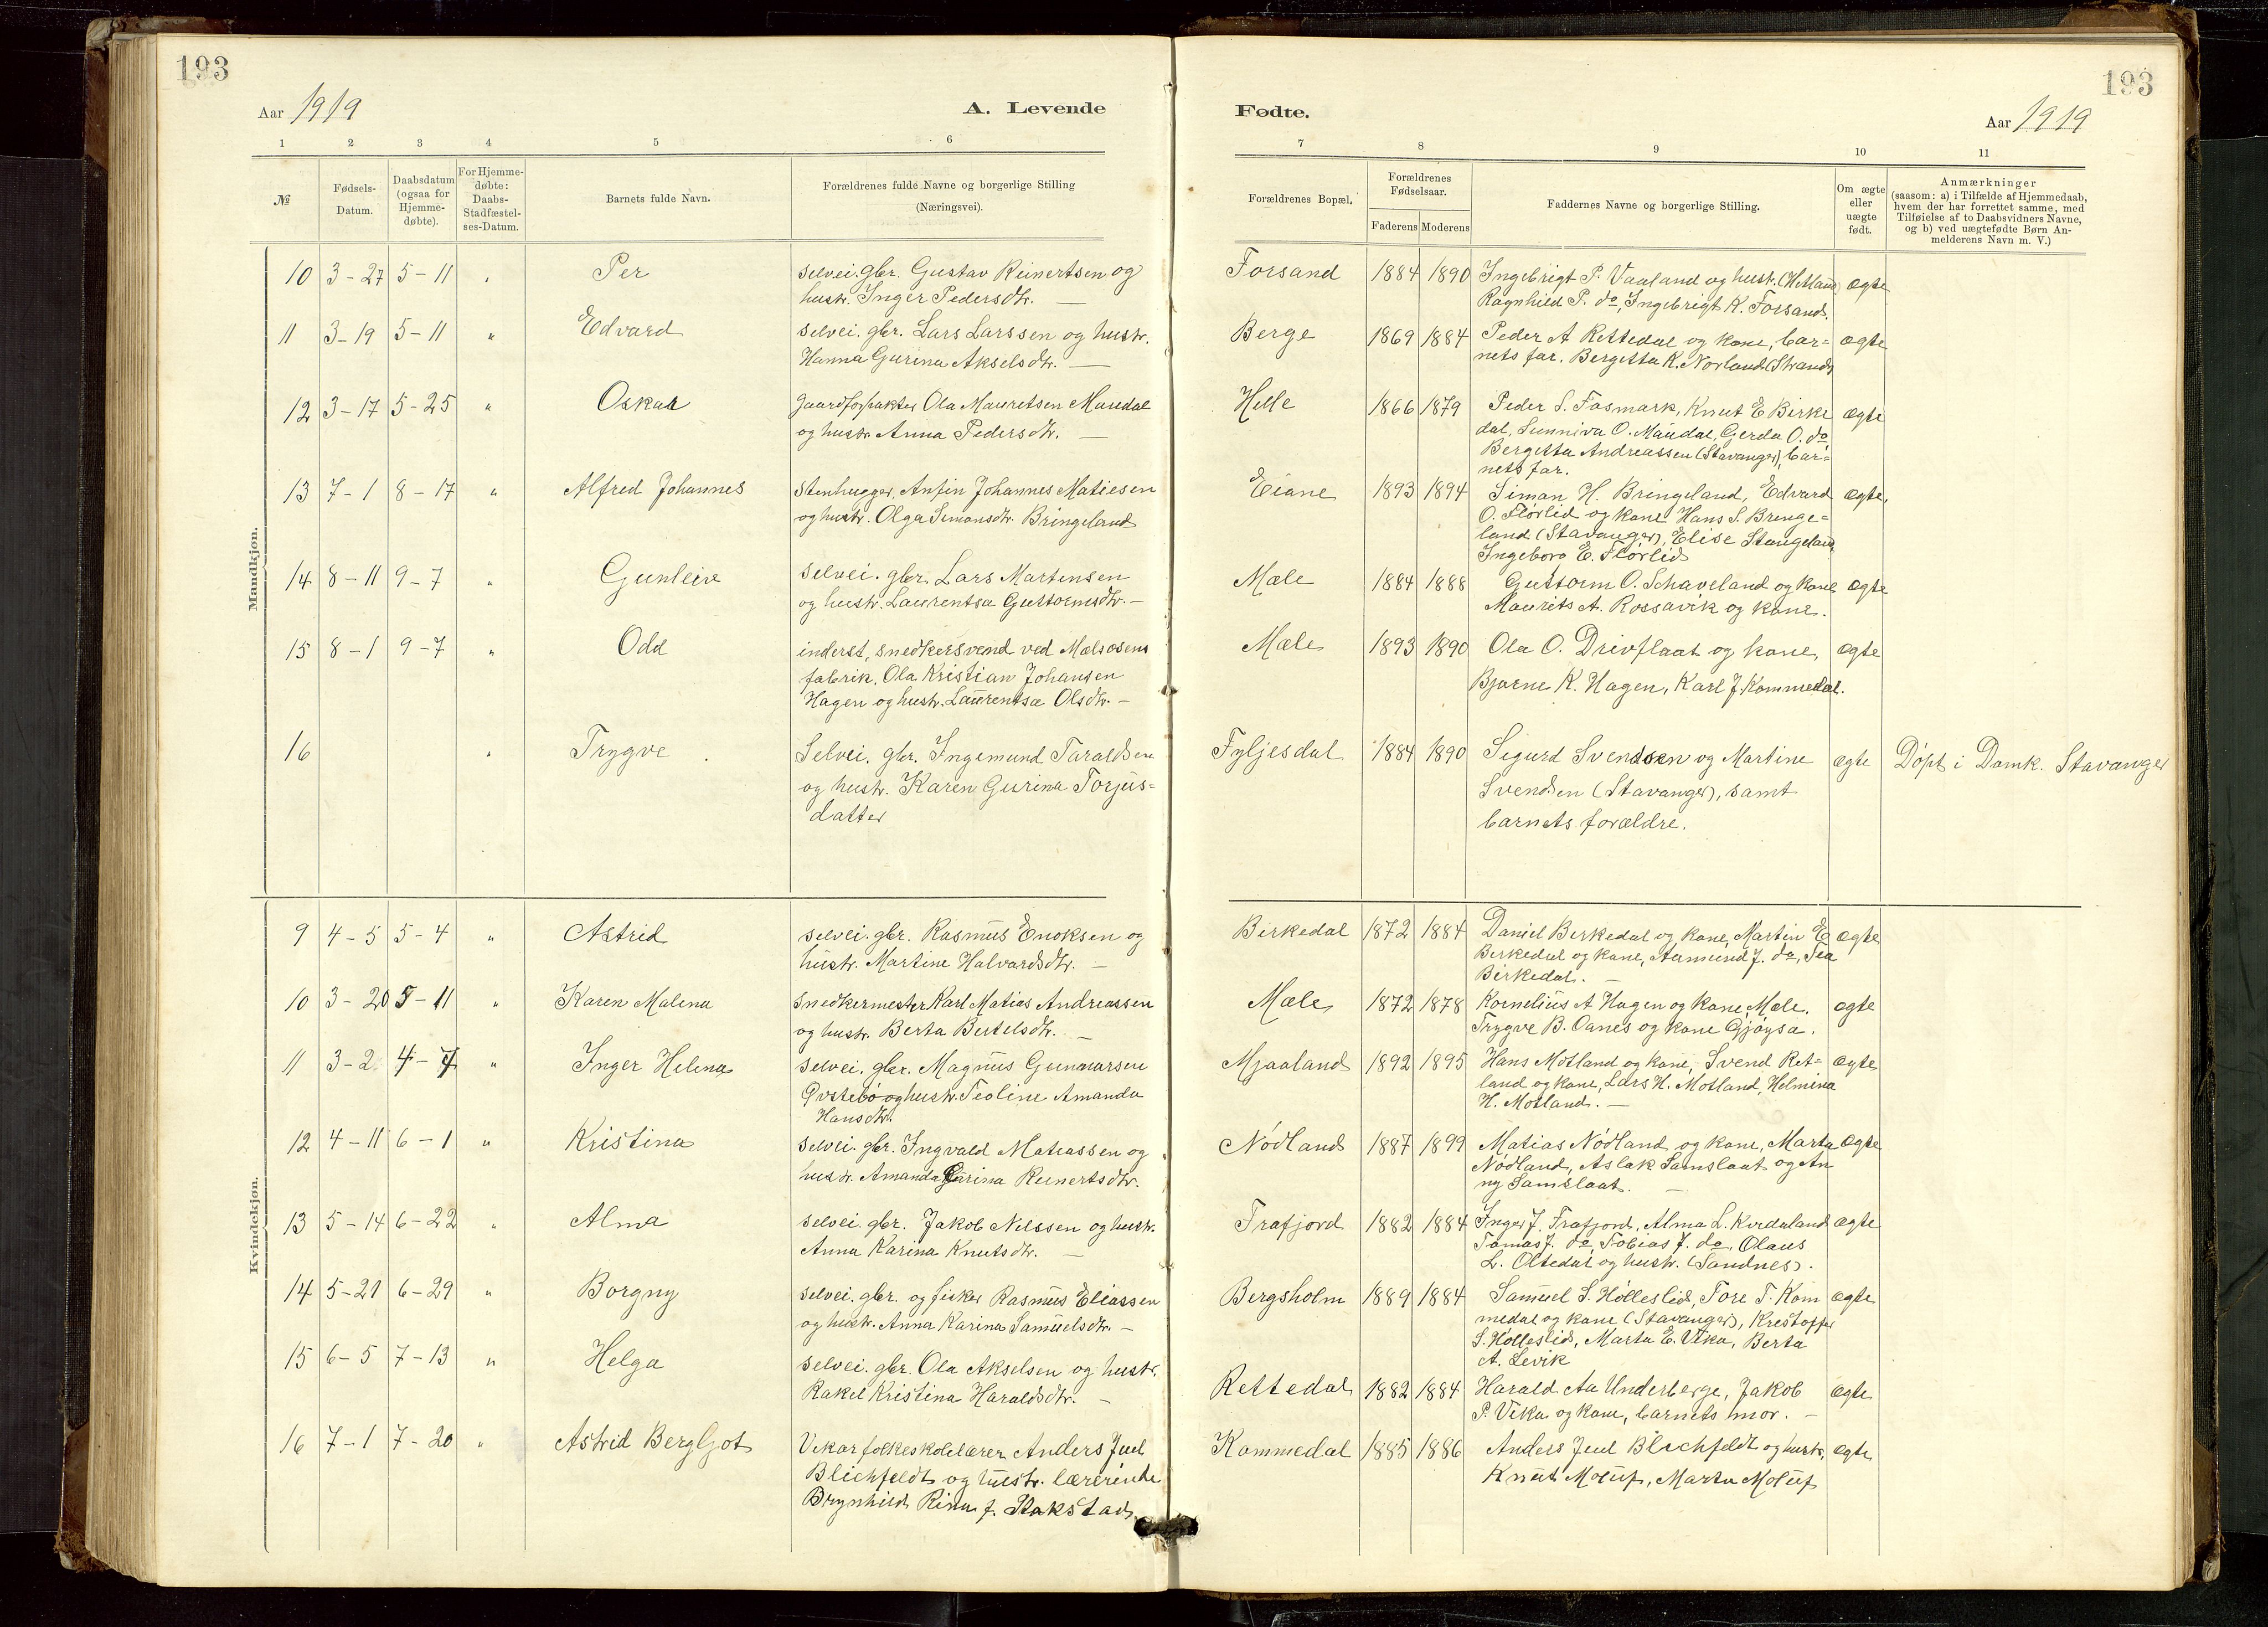 193
Aar 1919
A. Levende
1 2 3 4 5 6
№
Fødsels-Datum.
Daabsdatum (ogsaa for Hjemme-døbte).
For Hjemme-døbte: Daabs-Stadfæstel-ses-Datum.
Barnets fulde Navn.
Forældrenes fulde Navne og borgerlige Stilling
(Næringsvei).
Mandkjøn.
10 3-27 5-11 " Per selvei. gbr. Gustav Reinertsen og
hustr. Inger Pedersdtr. —
11 3-19 5-11 " Edvard selvei. gbr. Lars Larssen og hustr.
Hanna Gurina Akselsdtr. —
12 3-17 5-25 " Oskar gaardforpakter Ola Mauretsen Maudal
og hustr. Anna Pedersdtr. —
13 7-1 8-17 " Alfred Johannes Stenhugger, Anfin Johannes Matiesen
og hustr. Olga Simonsdtr. Bringeland
14 8-11 9-7 " Gunleiv selvei. gbr. Lars Martensen
og hustr. Laurentsa Guttormsdtr. —
15 8-1 9-7 " Odd inderst, snedkersvend ved Mælsosens
fabrik. Ola Kristian Johansen
Hagen og hustr. Laurentsa Olsdtr. —
16 " Trygve Selvei. gbr. Ingemund Taraldsen
og hustr. Karen Gurina Torjus=
datter
Kvindekjøn.
9 4-5 5-4 " Astrid selvei. gbr. Rasmus Enoksen og
hustr. Martine Halvardsdtr. —
10 3-20 5-11 " Karen Malena Snedkermester Karl Matias Andreassen
og hustr. Berta Bertelsdtr. —
11 3-2 4-7 " Inger Helena selvei. gbr. Magnus Gunnarsen
Øvstebø og hustr. Teoline Amanda
Hansdtr.
12 4-11 6-1 " Kristina selvei. gbr. Ingvald Matiassen og
hustr. Amanda Gurina Reinertsdtr.
13 5-14 6-22 " Alma selvei. gbr. Jakob Nilssen og hustr.
Anna Karina Knutsdtr. —
14 5-21 6-29 " Borgny selvei. gbr. og fisker Rasmus Eliassen
og hustr. Anna Karina Samuelsdtr. —
15 6-5 7-13 " Helga selvei. gbr. Ola Akselsen og hustr.
Rakel Kristina Haraldsdtr. —
16 7-1 7-20 " Astrid Bergljot Vikar folkeskolelærer Anders Juul
Blichfeldt og hustr. lærerinde
Brynhild Rina f. Stakstad.
193
Fødte.
Aar 1919
7 8 9 10 11
Forældrenes Bopæl.
Forældrenes Fødselsaar.
Faderens Moderens
Faddernes Navne og borgerlige Stilling.
Om ægte eller uægte født.
Anmærkninger
(saasom: a) i Tilfælde af Hjemmedaab,
hvem der har forrettet samme, med
Tilføielse af to Daabsvidners Navne,
og b) ved uægtefødte Børn An-
melderens Navn m. V.)
Forsand 1884 1890 Ingebrigt P. Vaaland og hustr. (Hetland) ægte
Ragnhild P. do, Ingebrigt K. Forsand.
Berge 1869 1884 Peder A Rettedal og kone, bar= ægte
nets far. Bergetta K. Norland (Strand)
Helle 1866 1879 Peder S. Fosmark, Knut E Birke ægte
dal, Sunniva O. Maudal, Gerda O. do
Bergetta Andreassen (Stavanger), bar=
nets far.
Eiane 1893 1894 Simon H. Bringeland, Edvard ægte,
O. Flørlid og kone Hans S. Bringe=
land (Stavanger), Elise Stangeland
Ingeborg E. Flørlid
Mæle 1884 1888 Guttorm O. Schaveland og kone ægte
Maurits A. Rossavik og kone.
Mæle 1893 1890 Ola O. Drivflaat og kone, ægte
Bjarne K. Hagen, Karl J. Kommedal.
Fyljesdal 1884 1890 Sigurd Svendsen og Martine ægte Døpt i Domk. Stavanger
Svendsen (Stavanger), samt
barnets forældre.
Birkedal 1872 1884 Daniel Birkedal og kone, Martin E ægte
Birkedal og kone, Aamund J. do, Tea
Birkedal. —
Mæle 1872 1878 Kornelius A Hagen og kone, Mæle. ægte
Trygve B. Oanes og kone Gjøysa.
Mjaaland 1892 1895 Hans Motland og kone, Svend Ret= ægte
land og kone, Lars H. Motland, Helmina
H. Motland. —
Nødland 1887 1899 Matias Nødland og kone, Marta ægte
Nødland, Aslak Samslaat og An
ny Samslaat. —
Frafjord 1882 1884 Inger J. Frafjord, Alma L. Kvidaland ægte
Tomas J. do, Tobias J. do, Olaus
L. Oltedal og hustr. (Sandnes).
Bergsholm 1889 1884 Samuel S. Hølleslid, Tore T. Kom ægte
medal og kone (Stavanger), Kristoffer
S. Hølleslid, Marta E. Vika, Berta
A. Levik
Rettedal 1882 1884 Harald Aa Underberge, Jakob ægte
P. Vika og kone, barnets mor. —
Kommedal 1885 1886 Anders Juul Blichfeldt og hustr, ægte
Knut Moluf, Marta Moluf